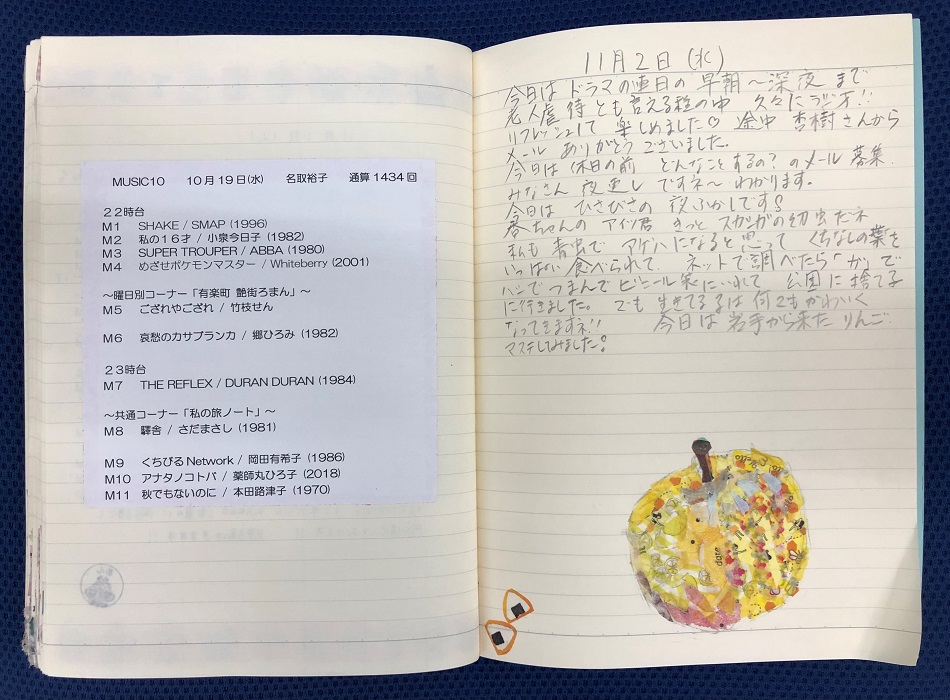 MUSIC10 10月19日(水) 名取裕子 通算1434回
22時台
M1 SHAKE / SMAP (1996)
M2 私の16才 / 小泉今日子 (1982)
M3 SUPER TROUPER / ABBA (1980)
M4 めざせポケモンマスター / Whiteberry (2001)
～曜日別コーナー「有楽町 艶街ろまん」～
M5 ござれやござれ / 竹枝せん
M6 哀愁のカサブランカ / 郷ひろみ (1982)
23時台
M7 THE REFLEX / DURAN DURAN (1984)
～共通コーナー「私の旅ノート」～
M8 驛舎 / さだまさし (1981)
M9 くちびるNetwork / 岡田有希子 (1986)
M10 アナタノコトバ / 薬師丸ひろ子 (2018)
M11 秋でもないのに / 本田路津子 (1970)
11月2日 (水)
今日は ドラマの連日の 早朝～深夜 まで
老人虐待とも言える程の中 久々に ラジオ!!
リフレッシュして 楽しめました♡ 途中 杏樹さんから
メール ありがとうございました。
今日は 休日の前 どんなことするの? のメール 募集
みなさん 夜更し ですネ～ わかります。
今日は ひさびさの 夜ふかしです
春ちゃんの アイツ君 きっと スガの幼虫だネ
私も 青虫で アゲハになると思って くちなしの葉を
いっぱい 食べられて、ネットで調べたら「が」で
ハシでつまんで ビニール袋にいれて 公園に捨て
に行きました。 でも 生きてる は何でもかわいく
なってきますネ!! 今日は岩手から来た りんご
マステしてみました!
date